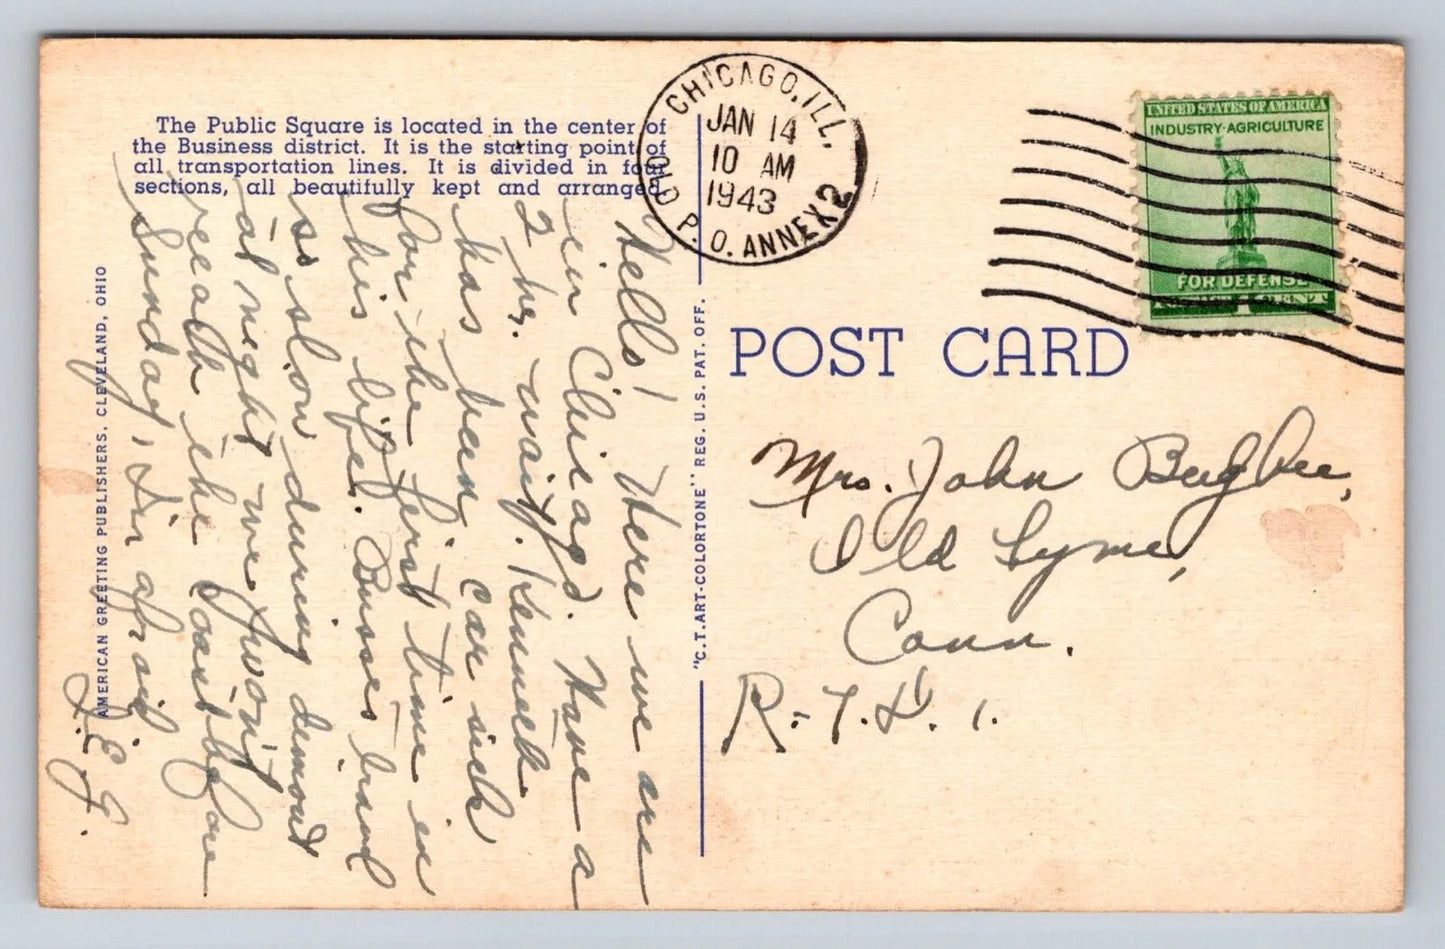 The Public Square is located in the center of
the Business district. It is the starting point of
all transportation lines. It is divided in four
sections, all beautifully kept and arranged.
AMERICAN GREETING PUBLISHERS, CLEVELAND, OHIO
Hello! Here we are
in Chicago. Have a
2 hr. wait. Kenneth
has been car sick
for the first time in
his life. Busses travel
so slow during dimout
at night we won't
reach the coast before
Sunday, I'm afraid
J. E. J.
"C.T. ART-COLORTONE" REG. U.S. PAT. OFF.
CHICAGO, ILL.
JAN 14
10 AM
1943
P. O. ANNEX 2
UNITED STATES OF AMERICA
INDUSTRY·AGRICULTURE
FOR DEFENSE
1 CENT
POST CARD
Mrs. John Bugbee,
Old Lyme,
Conn.
R.F.D. 1.